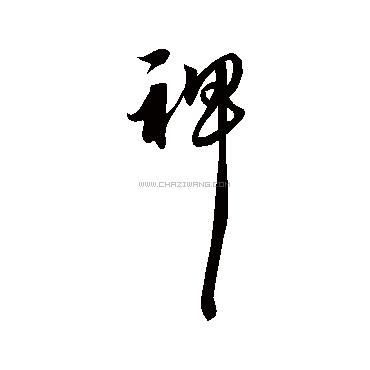 裨
WWW.CHAZIWANG.COM